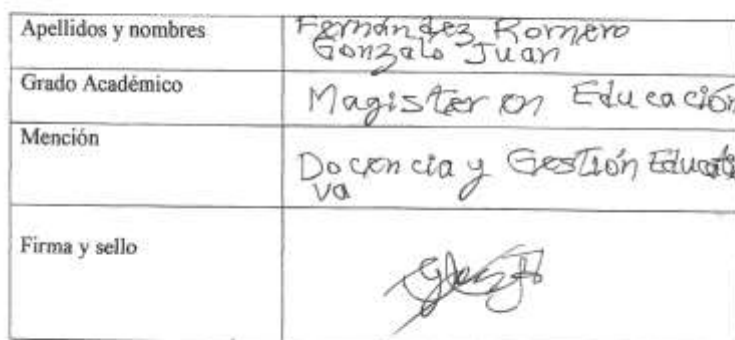 Apellidos y nombres
Fernández Romero
Gonzalo Juan
Grado Académico
Magister en Educación
Mención
Docencia y Gestión Educati
va
Firma y sello